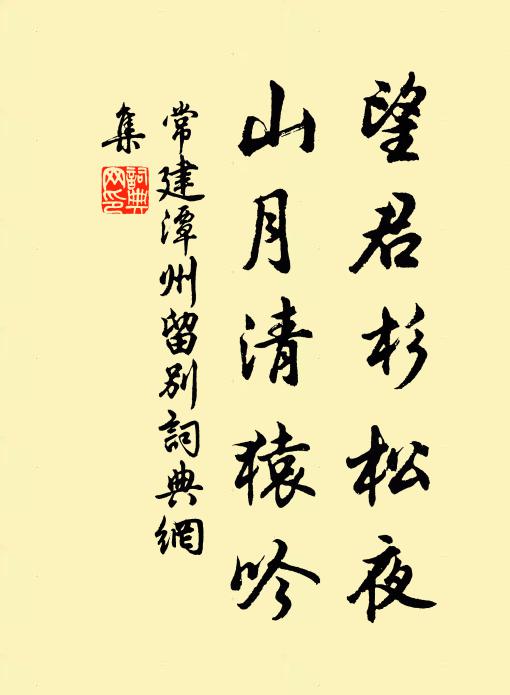 望君杉松夜
山月清猿吟
常建潭州留別詞典網
集
詞典
网印